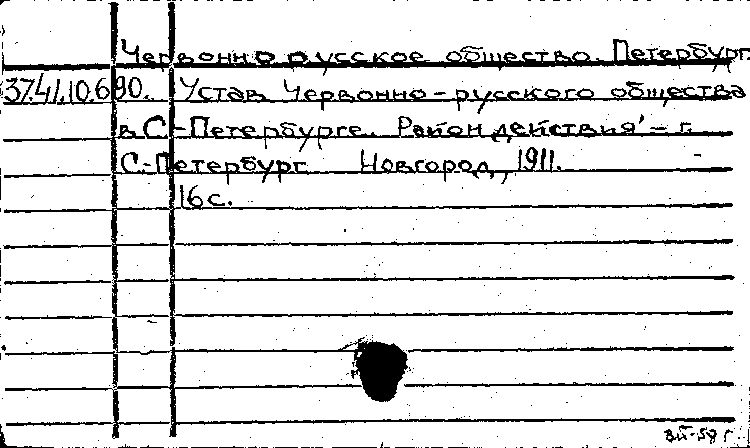 Червонно русское общество. Петербург.
37.41.10.690. Устав Червонно-русского общества
в С.-Петербурге. Район действия - г.
С.-Петербург Новгород, 1911.
16 с.